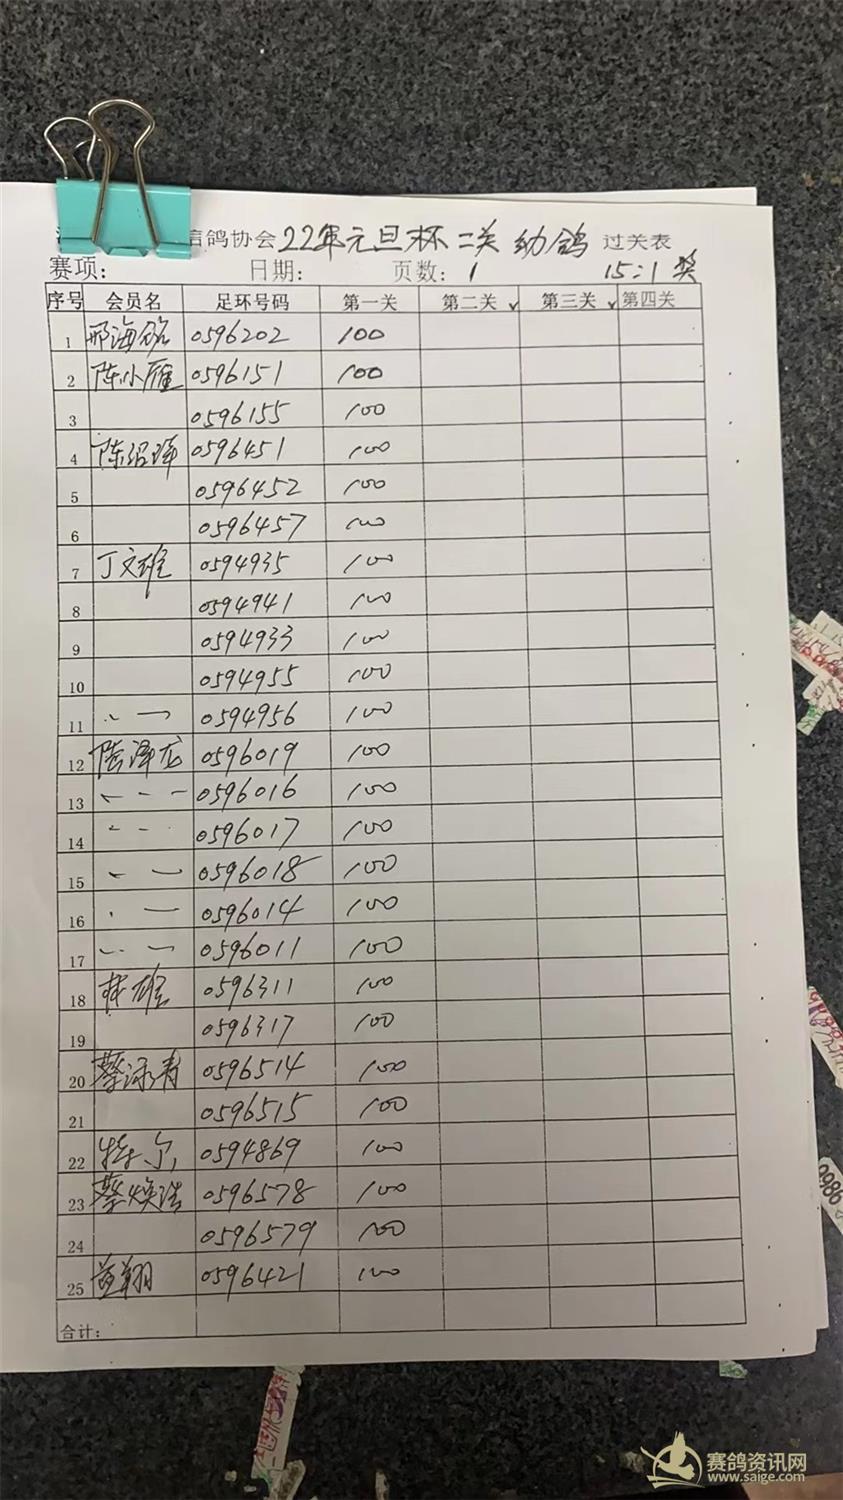 信鸽协会22年元旦杯二关幼鸽 过关表
赛项: 日期: 页数:1 15:1奖
序号 会员名 足环号码 第一关 第二关 第三关 第四关
1 邢海铭 0596202 100
2 陈小雁 0596151 100
3 0596155 100
4 陈绍 0596451 100
5 0596452 100
6 0596457 100
7 丁文雄 0594935 100
8 0594941 100
9 0594933 100
10 0594955 100
11 0594956 100
12 陆泽龙 0596019 100
13 0596016 100
14 0596017 100
15 0596018 100
16 0596014 100
17 0596011 100
18 林雄 0596311 100
19 0596317 100
20 蔡泳青 0596514 100
21 0596515 100
22 0594869 100
23 蔡焕浩 0596578 100
24 0596579 100
25 黄翔 0596421 100
合计:
9986
赛鸽资讯网
www.saige.com